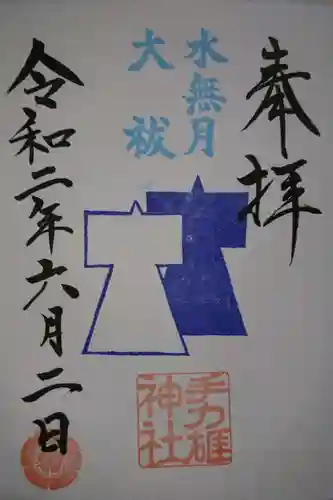 奉拝
水無月
大祓
令和二年六月二日
手力雄
神社